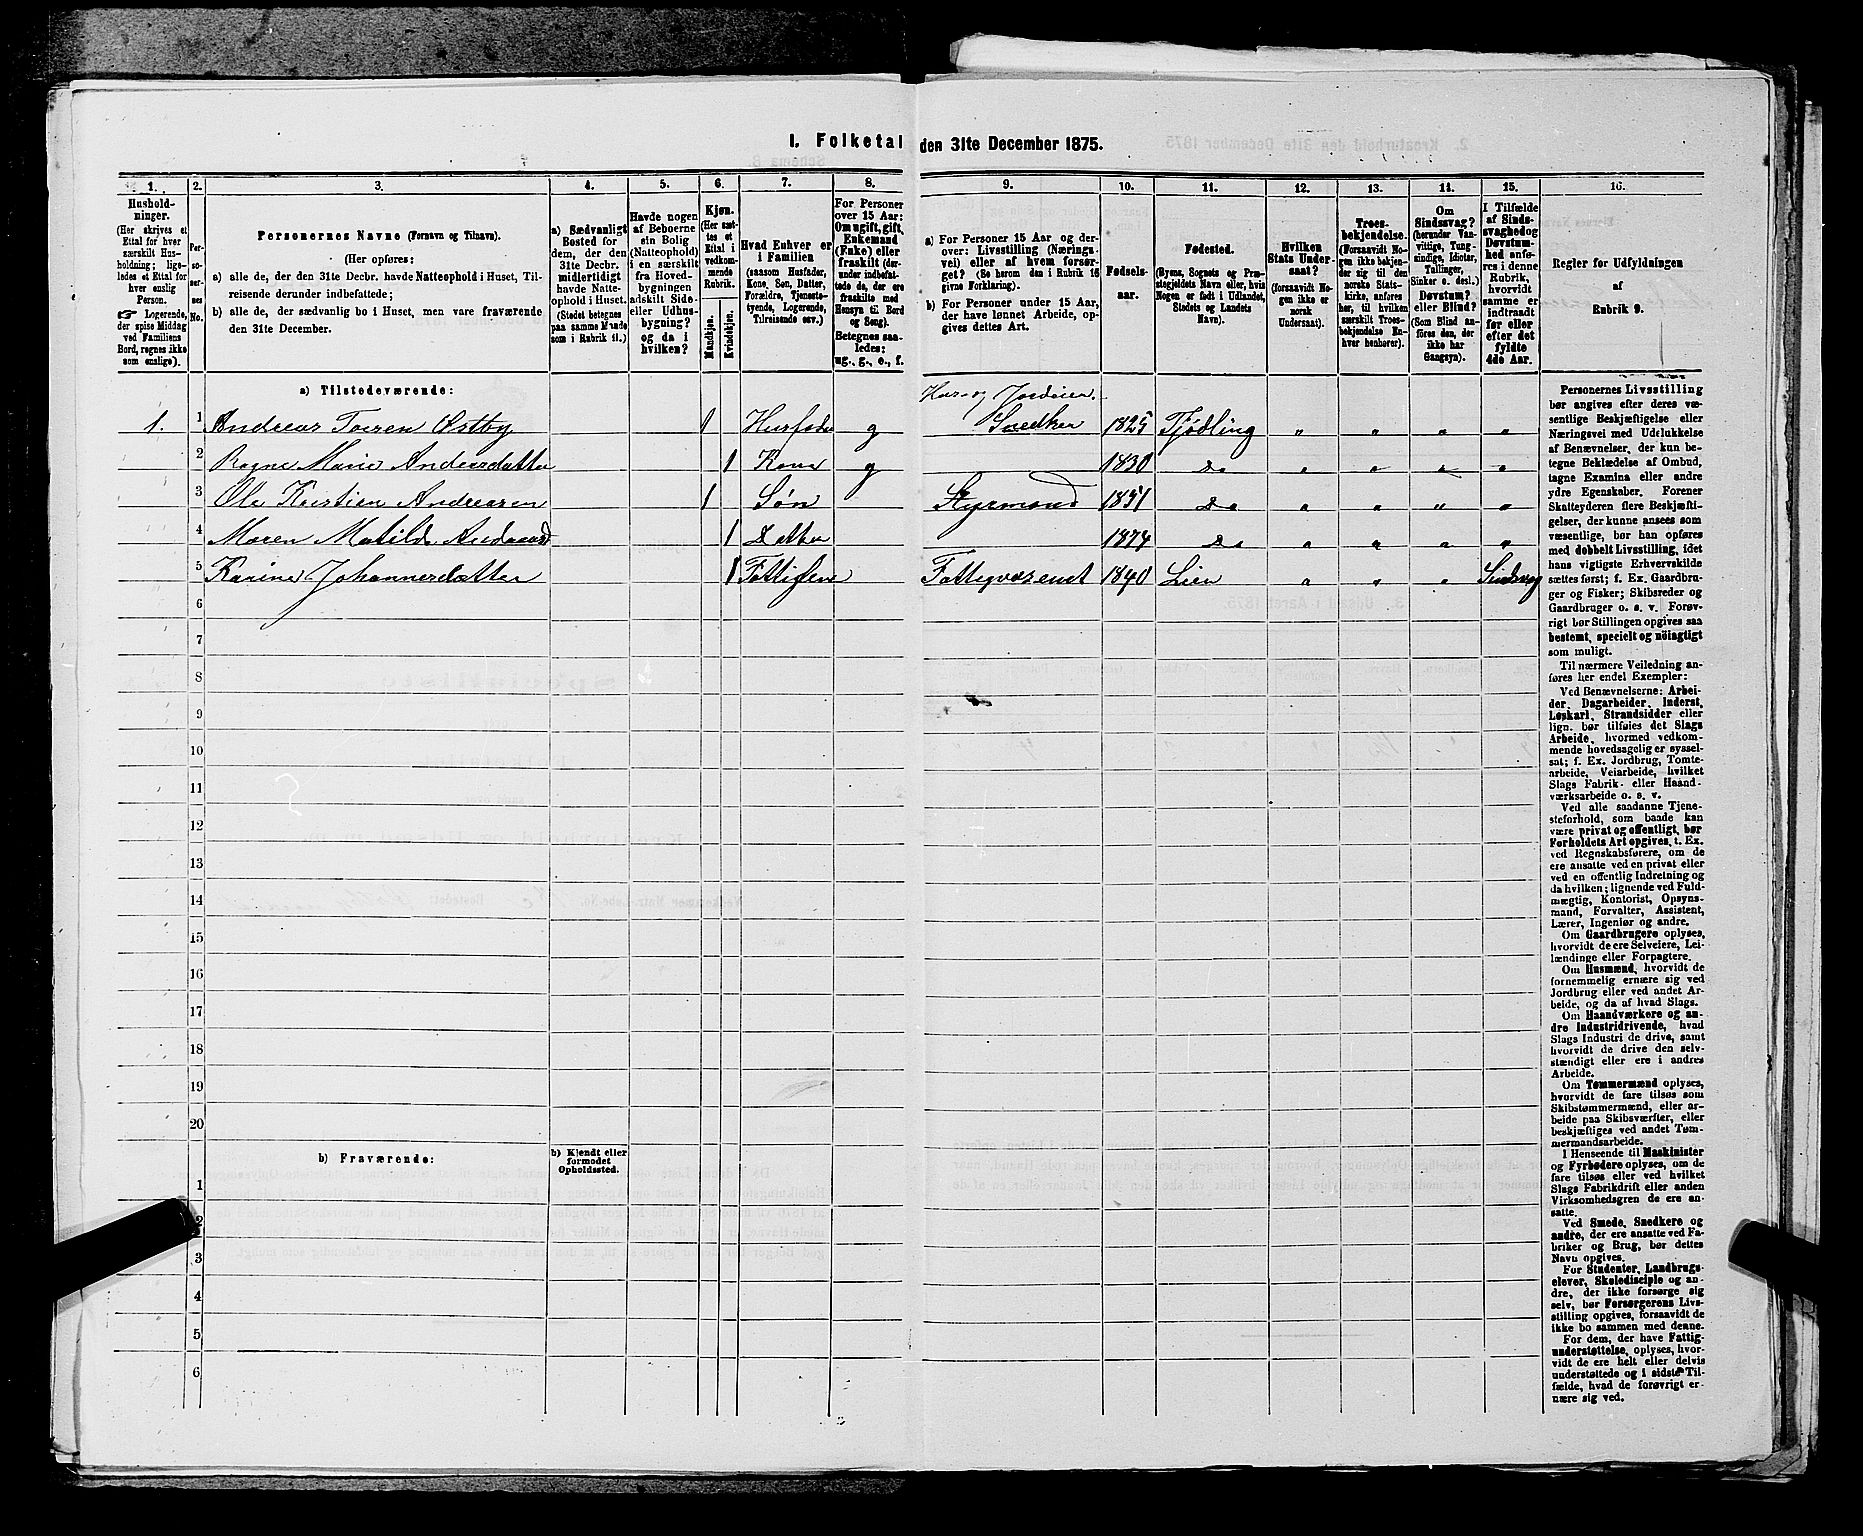 I. Folketal den 31te December 1875.
1. 2. 3. 4. 5. 6. 7. 8. 9. 10. 11. 12. 13. 14. 15. 16.
Hushold-
ninger.
(Her skrives et
Ettal for hver
særskilt Hus-
holdning; lige-
ledes et Ettal for
hver enslig
Person.
☞ Logerende,
der spise Middag
ved Familiens
Bord, regnes ikke
som enslige).
Per-
so-
ner-
nes
No.
Personernes Navne (Fornavn og Tilnavn).
(Her opføres:
a) alle de, der den 31te Decbr. havde Natteophold i Huset, Til-
reisende derunder indbefattede;
b) alle de, der sædvanlig bo i Huset, men vare fraværende
den 31te December.
a) Sædvanligt
Bosted for
dem, der den
31te Decbr.
midlertidigt
havde Natte-
ophold i Huset.
(Stedet betegnes
paa samme Maade
som i Rubrik 11.)
Havde nogen
af Beboerne
sin Bolig
(Natteophold)
i en særskilt
fra Hoved-
bygningen
adskilt Side-
eller Udhus-
bygning?
og da i
hvilken?
Kjøn.
(Her sæt-
tes et
Ettal i
vedkom-
mende
Rubrik.
Mandkjøn.
Kvindekjøn.
Hvad Enhver er
i Familien
(saasom Husfader,
Kone, Søn, Datter,
Forældre, Tjeneste-
tyende, Logerende,
Tilreisende osv.)
For Personer
over 15 Aar:
Om ugift, gift,
Enkemand
(Enke) eller
fraskilt (der-
under indbefat-
tede de, der ere
fraskilte med
Hensyn til Bord
og Seng).
Betegnes saa-
ledes:
ug., g., e., f.
a) For Personer 15 Aar og der-
over: Livsstilling (Nærings-
vei) eller af hvem forsør-
get? (Se herom den i Rubrik 16
givne Forklaring).
b) For Personer under 15 Aar,
der have lønnet Arbeide, op-
gives dettes Art.
Fødsels-
aar.
Fødested.
(Byens, Sognets og Præ-
stegjeldets Navn eller, hvis
Nogen er født i Udlandet,
Stedets og Landets
Navn).
Hvilken
Stats Under-
saat?
(forsaavidt No-
gen ikke er
norsk
Undersaat).
Troes-
bekjendelse.
(Forsaavidt No-
gen ikke bekjen-
der sig til den
norske Stats-
kirke, anføres
her, til hvilken
særskilt Troes-
bekjendelse En-
hver henhører).
Om
Sindssvag?
(herunder Van-
vittige, Tung-
sindige, Idioter,
Tullinger,
Sinker o. desl.)
Døvstum?
eller Blind?
(Som Blind an-
føres den, der
ikke har
Gangsyn).
I Tilfælde
af Sinds-
svaghed og
Døvstum-
hed anfø-
res i denne
Rubrik,
hvorvidt
samme er
indtraadt
før eller
efter det
fyldte
4de Aar.
Regler for Udfyldningen
af
Rubrik 9.
a) Tilstedeværende:
Hus- og Jordeier.
1. 1 Andreas Østby 1 Husfader g Snedker 1825 Tjødling " " " "
2 Ragne Marie Andersdatter 1 Kone g 1830 Do " " " "
3 Ole Kristian Andreasen 1 Søn Styrmand 1851 Do " " " "
4 Maren Matilde 1 Datter 1874 Do " " " "
5 Karine Johannesdatter 1 Fattigvæsenet 1840 Lien " " " Sindsvag
6
7
8
9
10
11
12
13
14
15
16
17
18
19
20
b) Fraværende:
b) Kjendt eller
formodet
Opholdssted.
1
2
3
4
5
6
Personernes Livsstilling
bør angives efter deres væ-
sentlige Beskjæftigelse eller
Næringsvei med Udelukkelse
af Benævnelser, der kun be-
tegne Beklædelse af Ombud,
tagne Examina eller andre
ydre Egenskaber. Forener
Skatteyderen flere Beskjæfti-
gelser, der kunne ansees som
væsentlige, bør han opføres
med dobbelt Livsstilling, idet
hans vigtigste Erhvervskilde
sættes først; f. Ex. Gaardbru-
ger og Fisker; Skibsreder og
Gaardbruger o. s. v. Forøv-
rigt bør Stillingen opgives saa
bestemt, specielt og nöiagtigt
som muligt.
Til nærmere Veiledning an-
føres her endel Exempler:
Ved Benævnelserne: Arbei-
der, Dagarbeider, Inderst,
Løskarl, Strandsidder eller
lign. bør tilføies det Slags
Arbeide, hvormed vedkom-
mende hovedsagelig er syssel-
sat; f. Ex. Jordbrug, Tomte-
arbeide, Veiarbeide, hvilket
Slags Fabrik- eller Haand-
værksarbeide o. s. v.
Ved alle saadanne Tjene-
steforhold, som baade kan
være privat og offentligt, bør
Forholdets Art opgives, t. Ex.
ved Regnskabsførere, om de
ere ansatte ved en privat eller
ved en offentlig Indretning og
da hvilken; lignende ved Fuld-
mægtig, Kontorist, Opsyns-
mand, Forvalter, Assistent,
Lærer, Ingeniør og andre.
Om Gaardbrugere oplyses,
hvorvidt de ere Selveiere, Lei-
lændinge eller Forpagtere.
Om Husmænd, hvorvidt de
fornemmelig ernære sig ved
Jordbrug eller ved andet Ar-
beide, og da af hvad Slags.
Om Haandværkere og an-
dre Industridrivende, hvad
Slags Industri de drive, samt
hvorvidt de drive den selv-
stændigt eller ere i andres
Arbeide.
Om Tømmermænd oplyses,
hvorvidt de fare tilsøs som
Skibstømmermænd, eller ar-
beide paa Skibsværfter, eller
beskjæftiges ved andet Tøm-
mermandsarbeide.
I Henseende til Maskinister
og Fyrbødere oplyses, om de
fare tilsøs eller ved hvilket
Slags Fabrikdrift eller anden
Virksomhedsgren de ere an-
satte.
Ved Smede, Snedkere og
andre, der ere ansatte ved Fa-
briker og Brug, bør dettes
Navn opgives.
For Studenter, Landbrugs-
elever, Skoledisciple og an-
dre, der ikke forsørge sig
selv, bør Forsørgerens Livs-
stilling opgives, forsaavidt de
ikke bo sammen med denne.
For dem, der have Fattig-
understøttelse, oplyses, hvor-
vidt de ere helt eller delvis
understøttede og i sidste Til-
fælde, hvad de forøvrigt er-
nære sig ved.